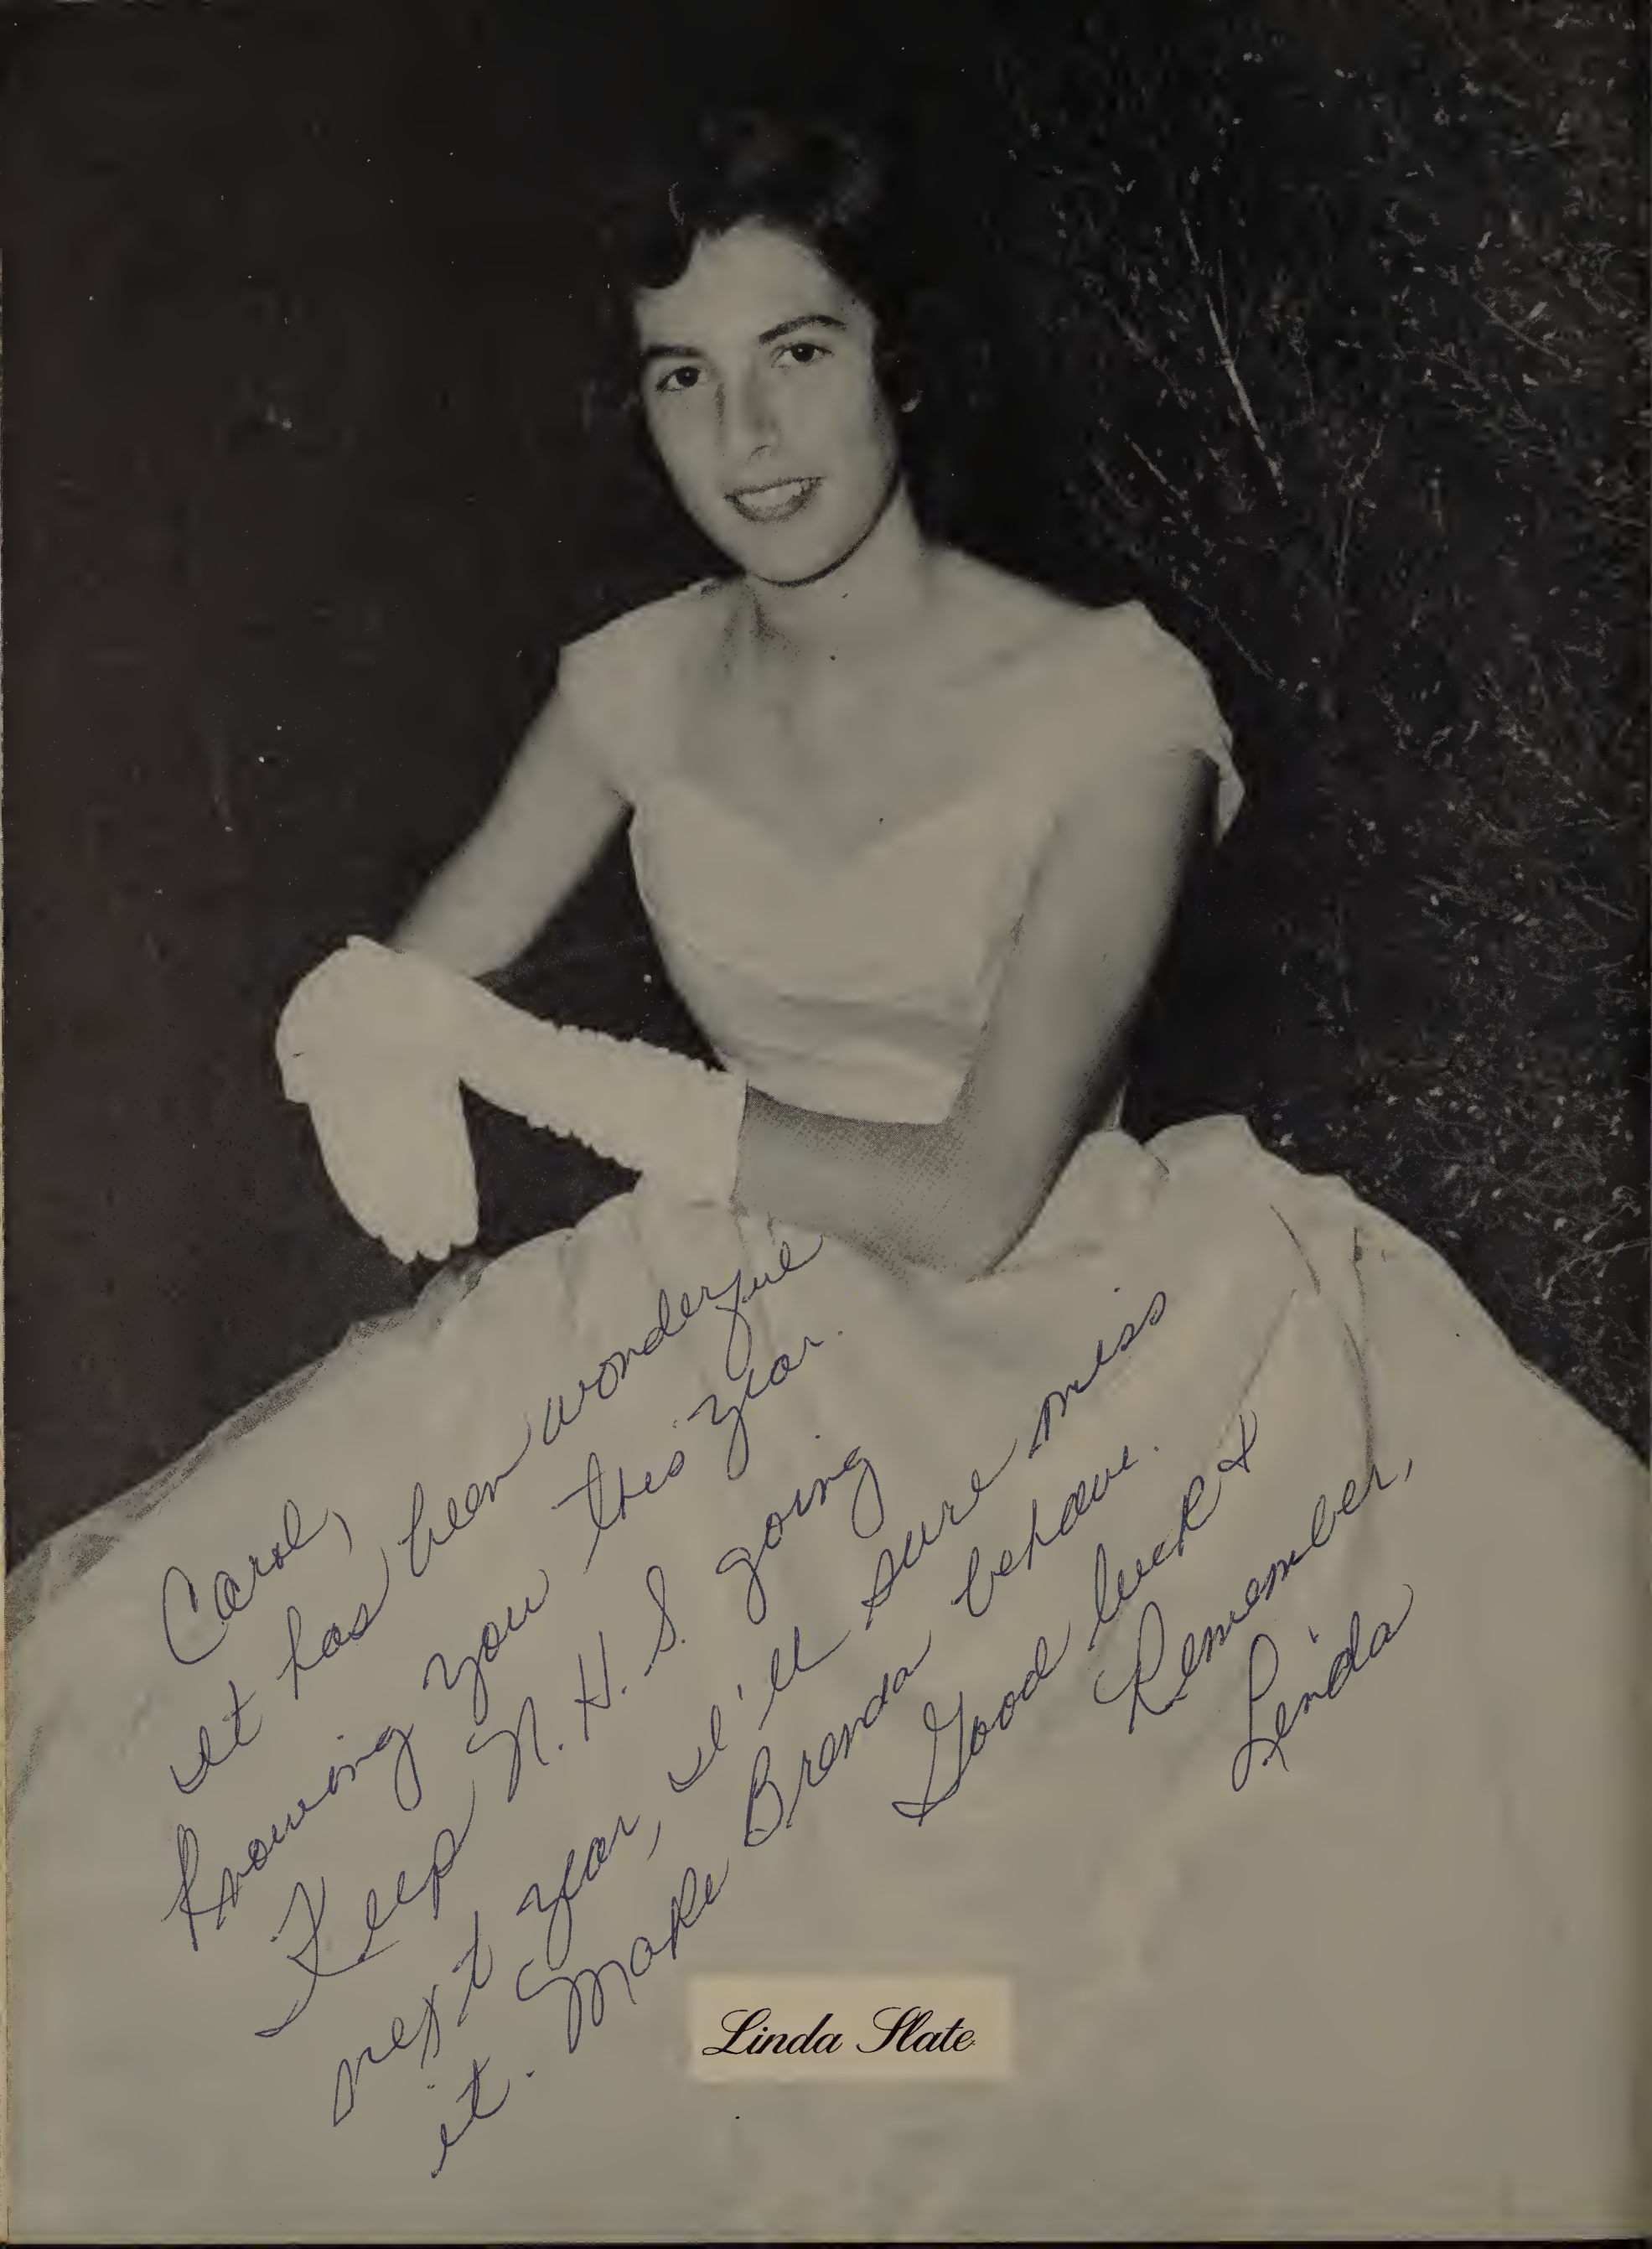 Carol,
It has been wonderful
knowing you this year.
Keep N. H. S. going
next year, I'll sure miss
it. Make Brenda behave.
Good luck &
Remember,
Linda
Linda Slate